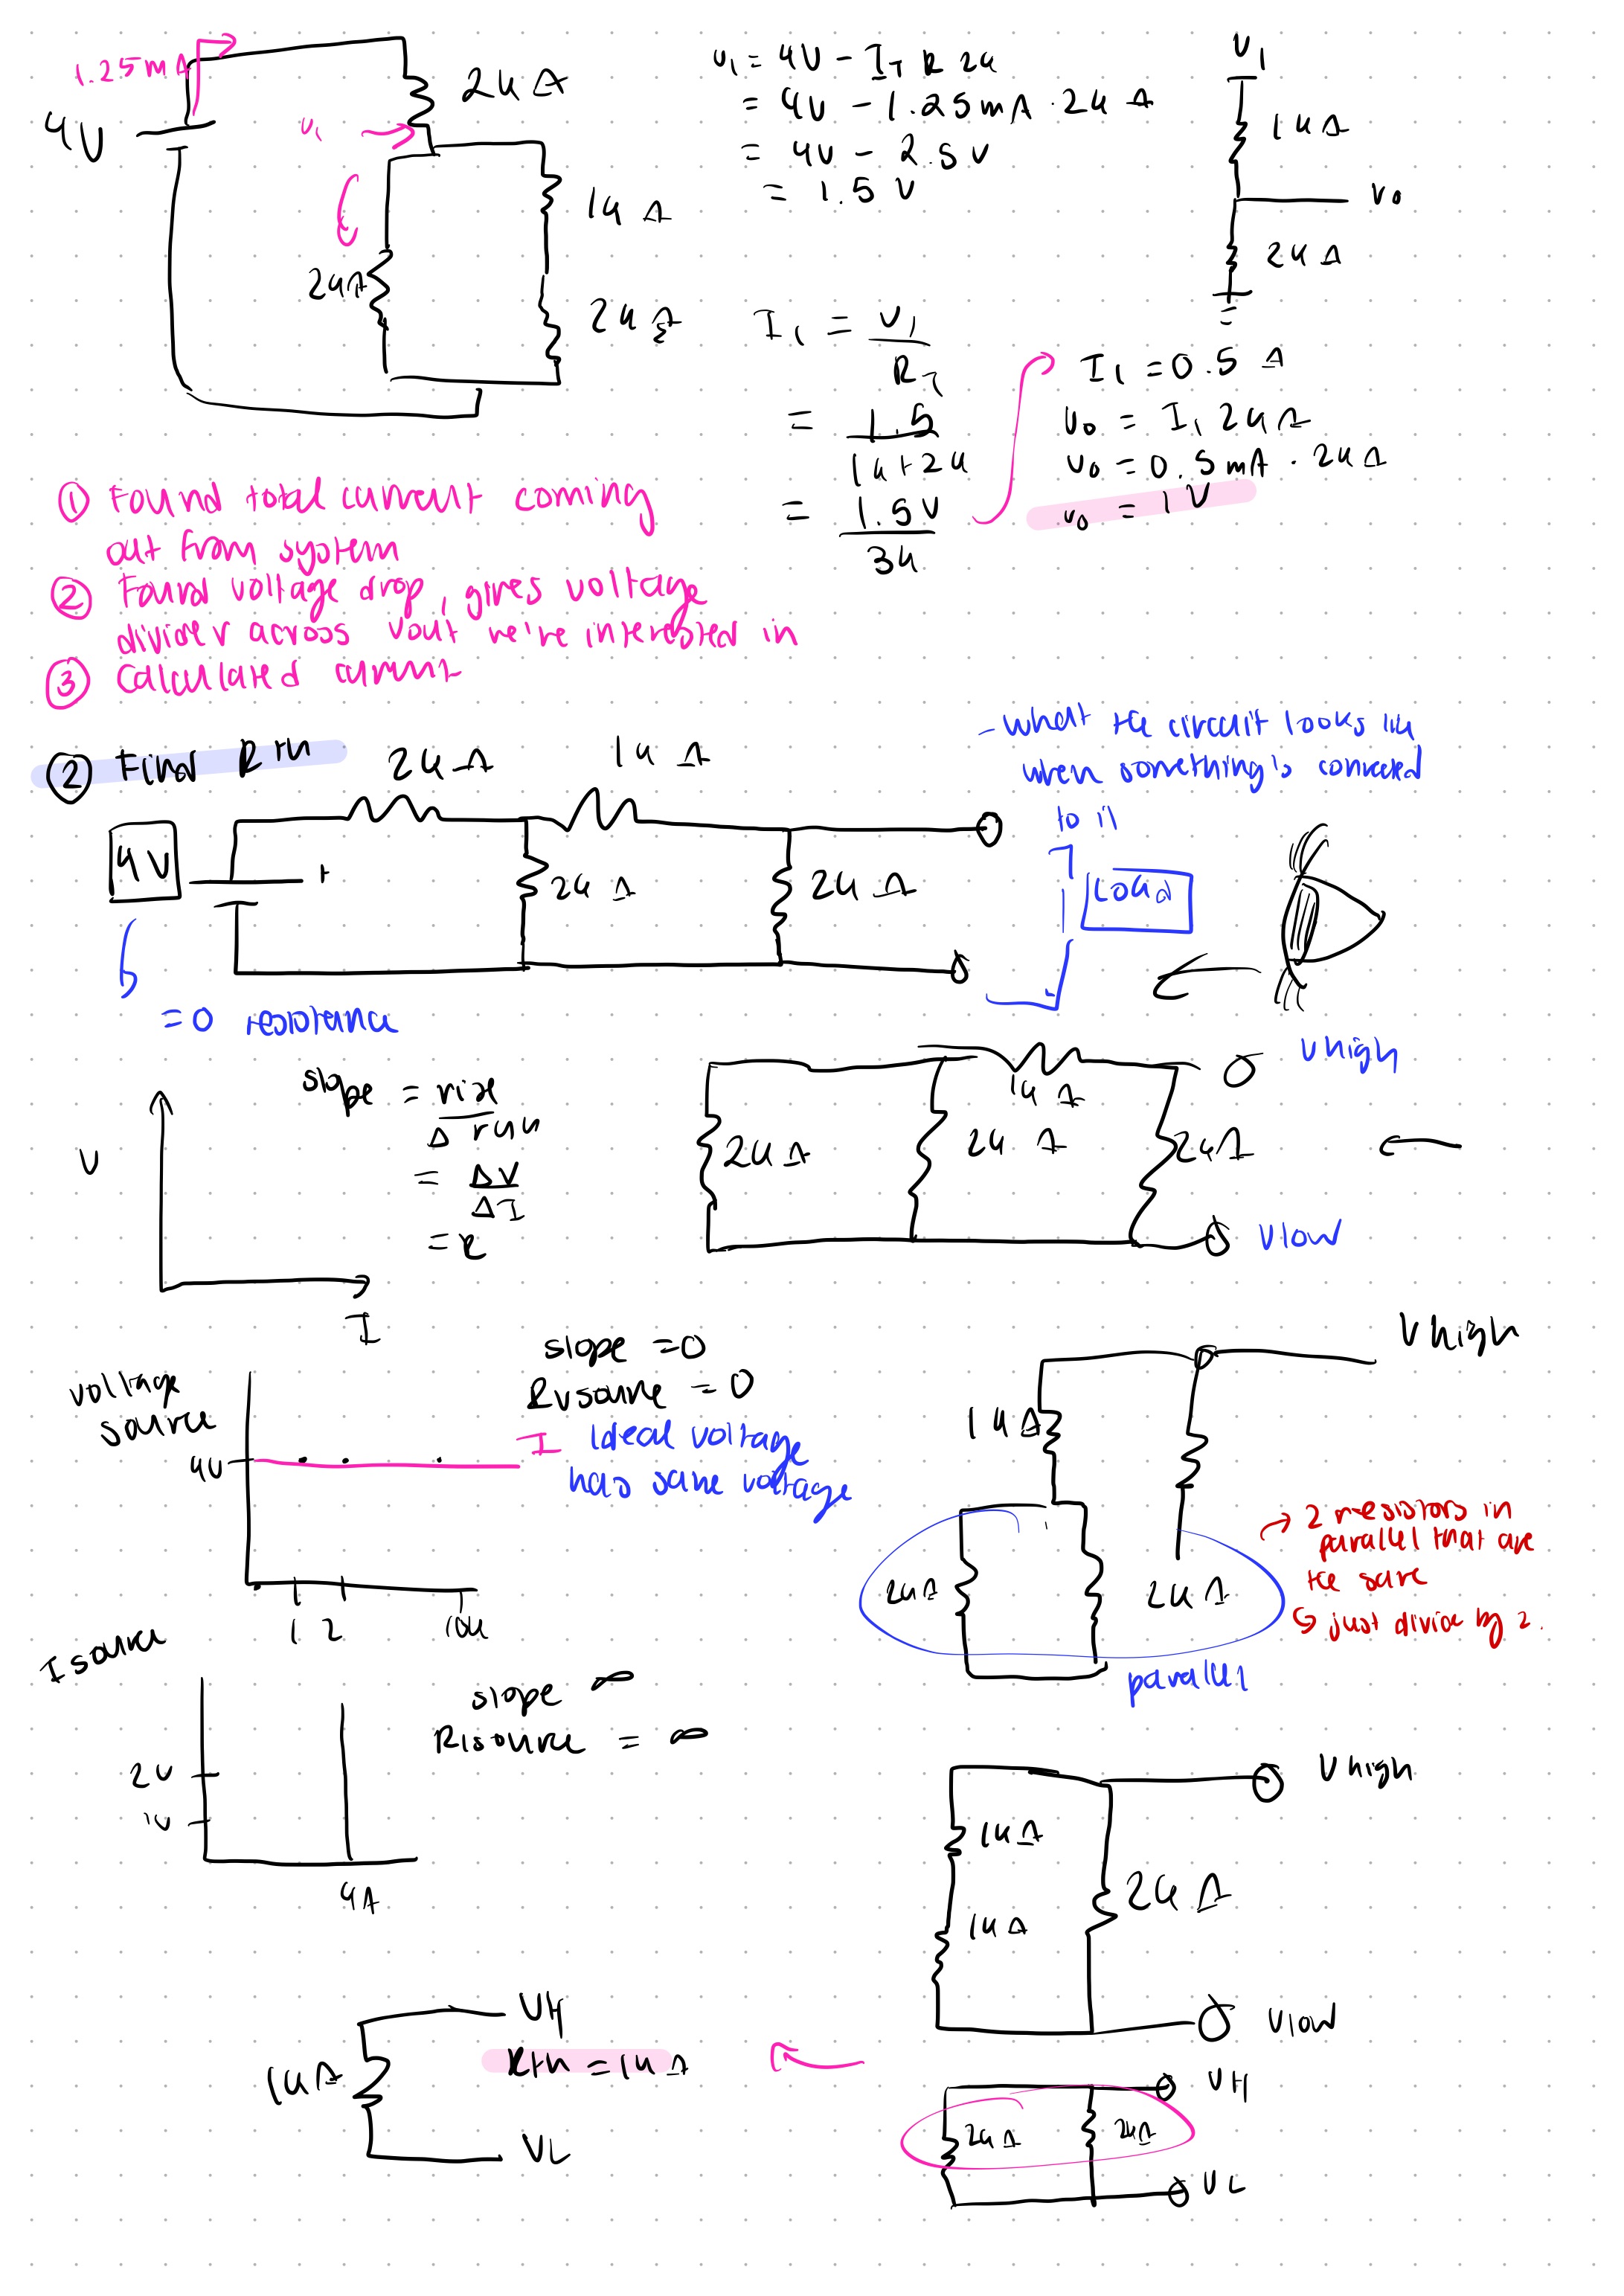 1.25mA
4V
2k Ω
V₁
1k Ω
2kΩ
2k Ω
V₁ = 4V - I_T R 2k
= 4V - 1.25mA · 2k Ω
= 4V - 2.5V
= 1.5 V
V₁
1kΩ
Vo
2kΩ
I₁ = V₁
R_T
= 1.5
1k+2k
= 1.5V
3k
I₁ = 0.5 A
Vo = I₁ 2kΩ
Vo = 0.5mA · 2kΩ
Vo = 1V
① Found total current coming
out from system
② Found voltage drop, gives voltage
divider across vout we're interested in
③ Calculated current
② Find Rth
2kΩ
1k Ω
4V
+
2k Ω
2k Ω
= 0 resistance
- what the circuit looks like
when something's connected
to it
Load
slope = rise
Δ run
= ΔV
ΔI
= R
V
I
1k Ω
V high
2kΩ
2k Ω
2kΩ
V low
voltage
source
4V
1 2 10k
slope = 0
Rvsource = 0
I
Ideal voltage
has same voltage
V high
1kΩ
2kΩ
2kΩ
parallel
→ 2 resistors in
parallel that are
the same
↳ just divide by 2.
I source
2V
1V
4A
slope ∞
Risource = ∞
V high
1kΩ
1kΩ
2kΩ
V low
VH
1kΩ
Rth = 1kΩ
VL
VH
2kΩ
2kΩ
VL